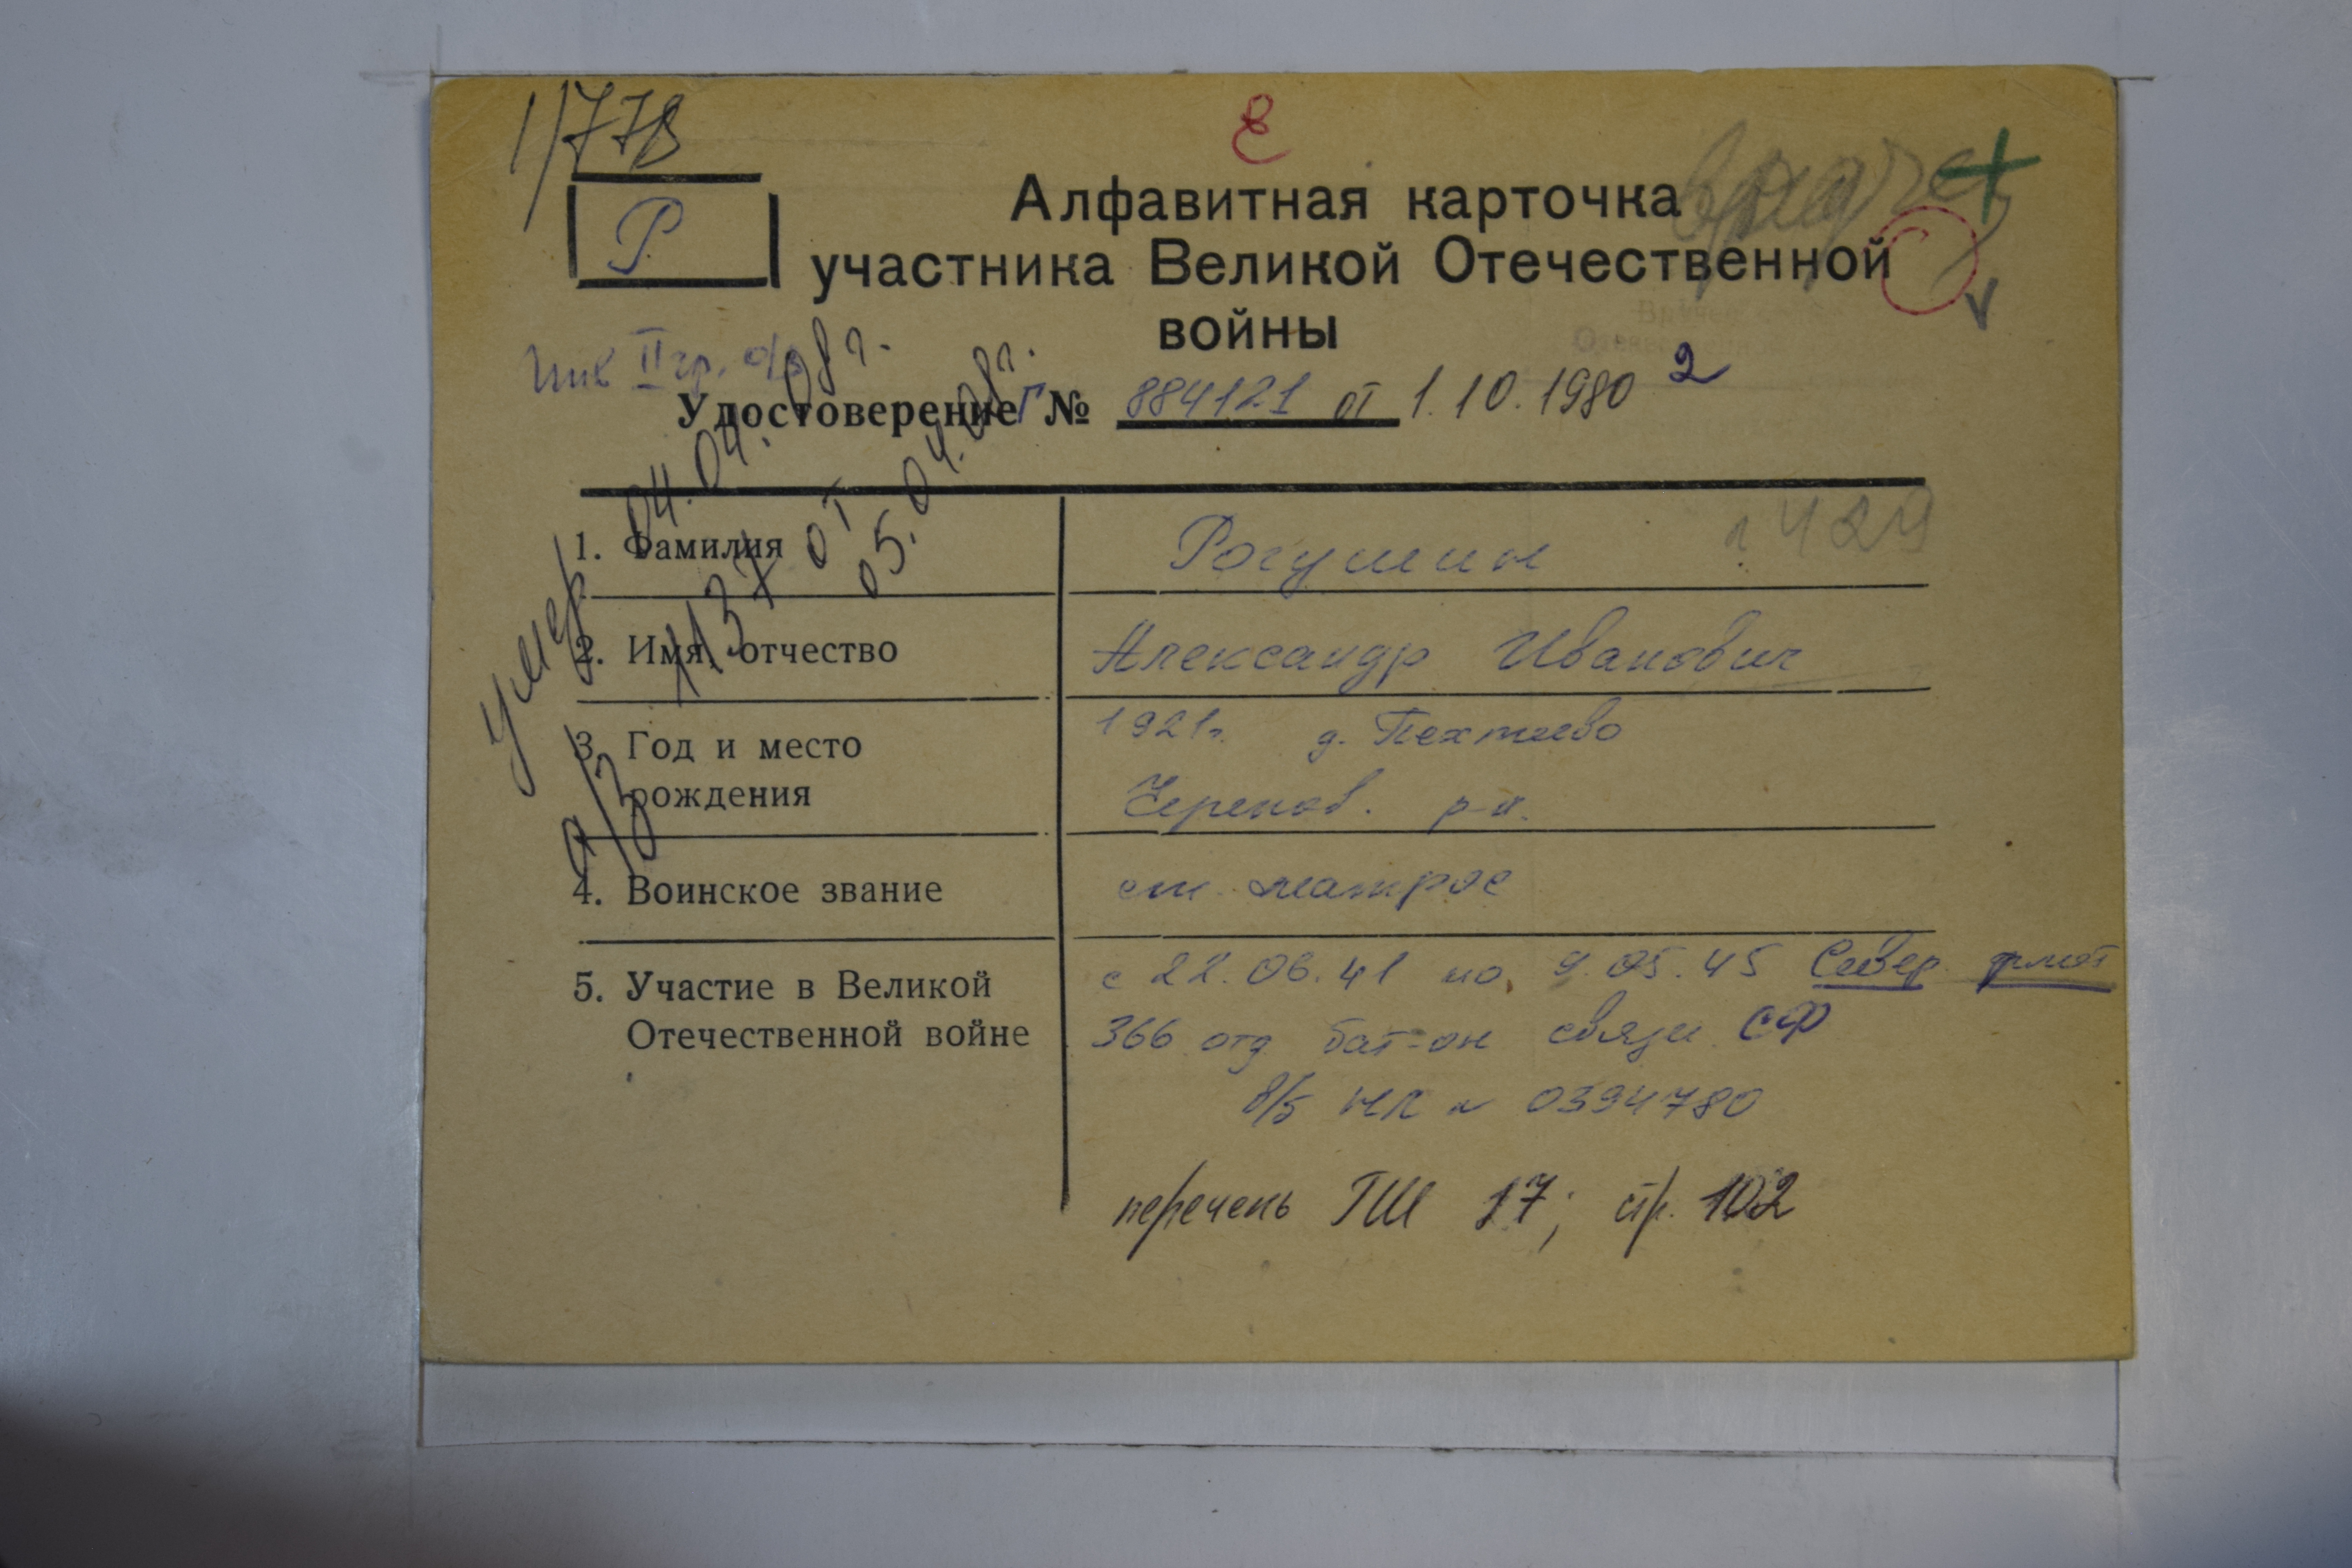 1/778
Р.
Алфавитная карточка
участника Великой Отечественной
войны
Инв II гр.
Удостоверение № 884121 от 1.10.1980 2
умер 04.04.08г.
а/з 1137 от 05.04.08г.
429
1. Фамилия Рогушин
2. Имя, отчество Александр Иванович
3. Год и место 1921г. д. Пехтеево
рождения Черепов. р-н.
4. Воинское звание ст. матрос
5. Участие в Великой с 22.06.41 по 9.05.45 Север флот
Отечественной войне 366 отд бат-он связи СФ
в/б НЛ № 0394780
перечень ГШ 17; стр. 102